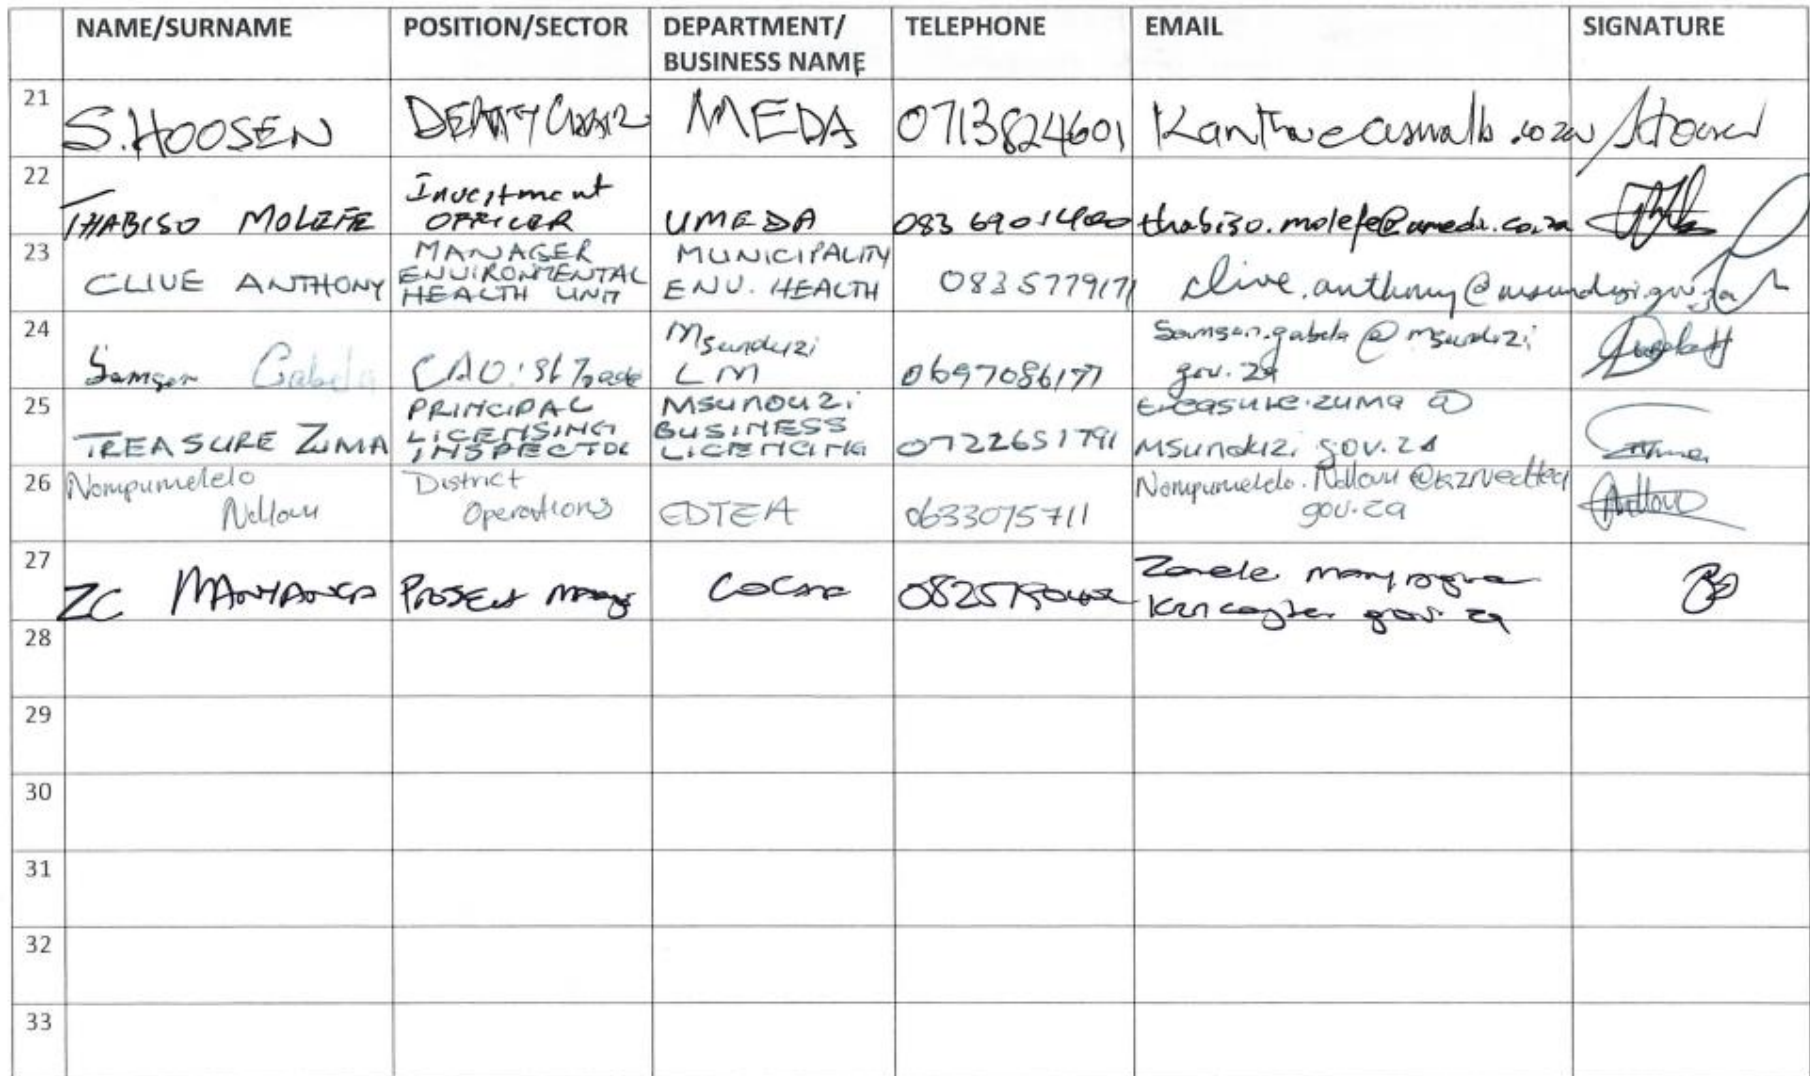 NAME/SURNAME POSITION/SECTOR DEPARTMENT/ BUSINESS NAME TELEPHONE EMAIL SIGNATURE
21 S.HOOSEN DEPUTY CHAIR MEDA 0713824601
22 THABISO MOLEFE Investment OFFICER UMEDA 083 6901400 thabiso.molefe@umeda.co.za
23 CLIVE ANTHONY MANAGER ENVIRONMENTAL HEALTH UNIT MUNICIPALITY ENV. HEALTH 083 5779171 clive.anthony@msunduzi.gov.za
24 Samson Gabela Msunduzi LM 0697086177 Samson.gabela @ msunduzi gov.za
25 TREASURE ZUMA PRINCIPAL LICENSING INSPECTOR MSUNDUZI BUSINESS LICENCING 0722651791 treasure.zuma @ msunduzi gov.za
26 Nompumelelo Ndlovu District Operations EDTEA 0633075711 Nompumelelo.Ndlovu @kznedtea gov.za
27 ZC gov.za
28
29
30
31
32
33